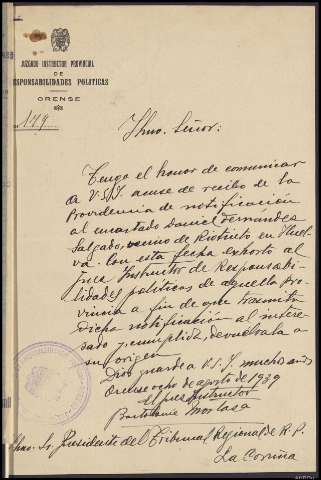 JUZGADO INSTRUCTOR PROVINCIAL
DE
RESPONSABILIDADES POLITICAS
ORENSE
Ilmo. Señor:
Tengo el honor de comunicar
a V.S.I. acuse de recibo de la
Providencia de notificación
al encartado Daniel Fernandez
Salgado, vecino de Riotinto en Huel-
va. Con esta fecha exhorto al
Juez Instructor de Responsabi-
lidades políticas de aquella Pro-
vincia a fin de que tramite
dicha notificación al intere-
sado y, cumplida, devuélvala a
su origen
Dios guarde a V.S.I. muchos años
Orense ocho de agosto de 1939
El juez Instructor
Ilmo. Sr. Presidente del Tribunal Regional de R.P.
La Coruña